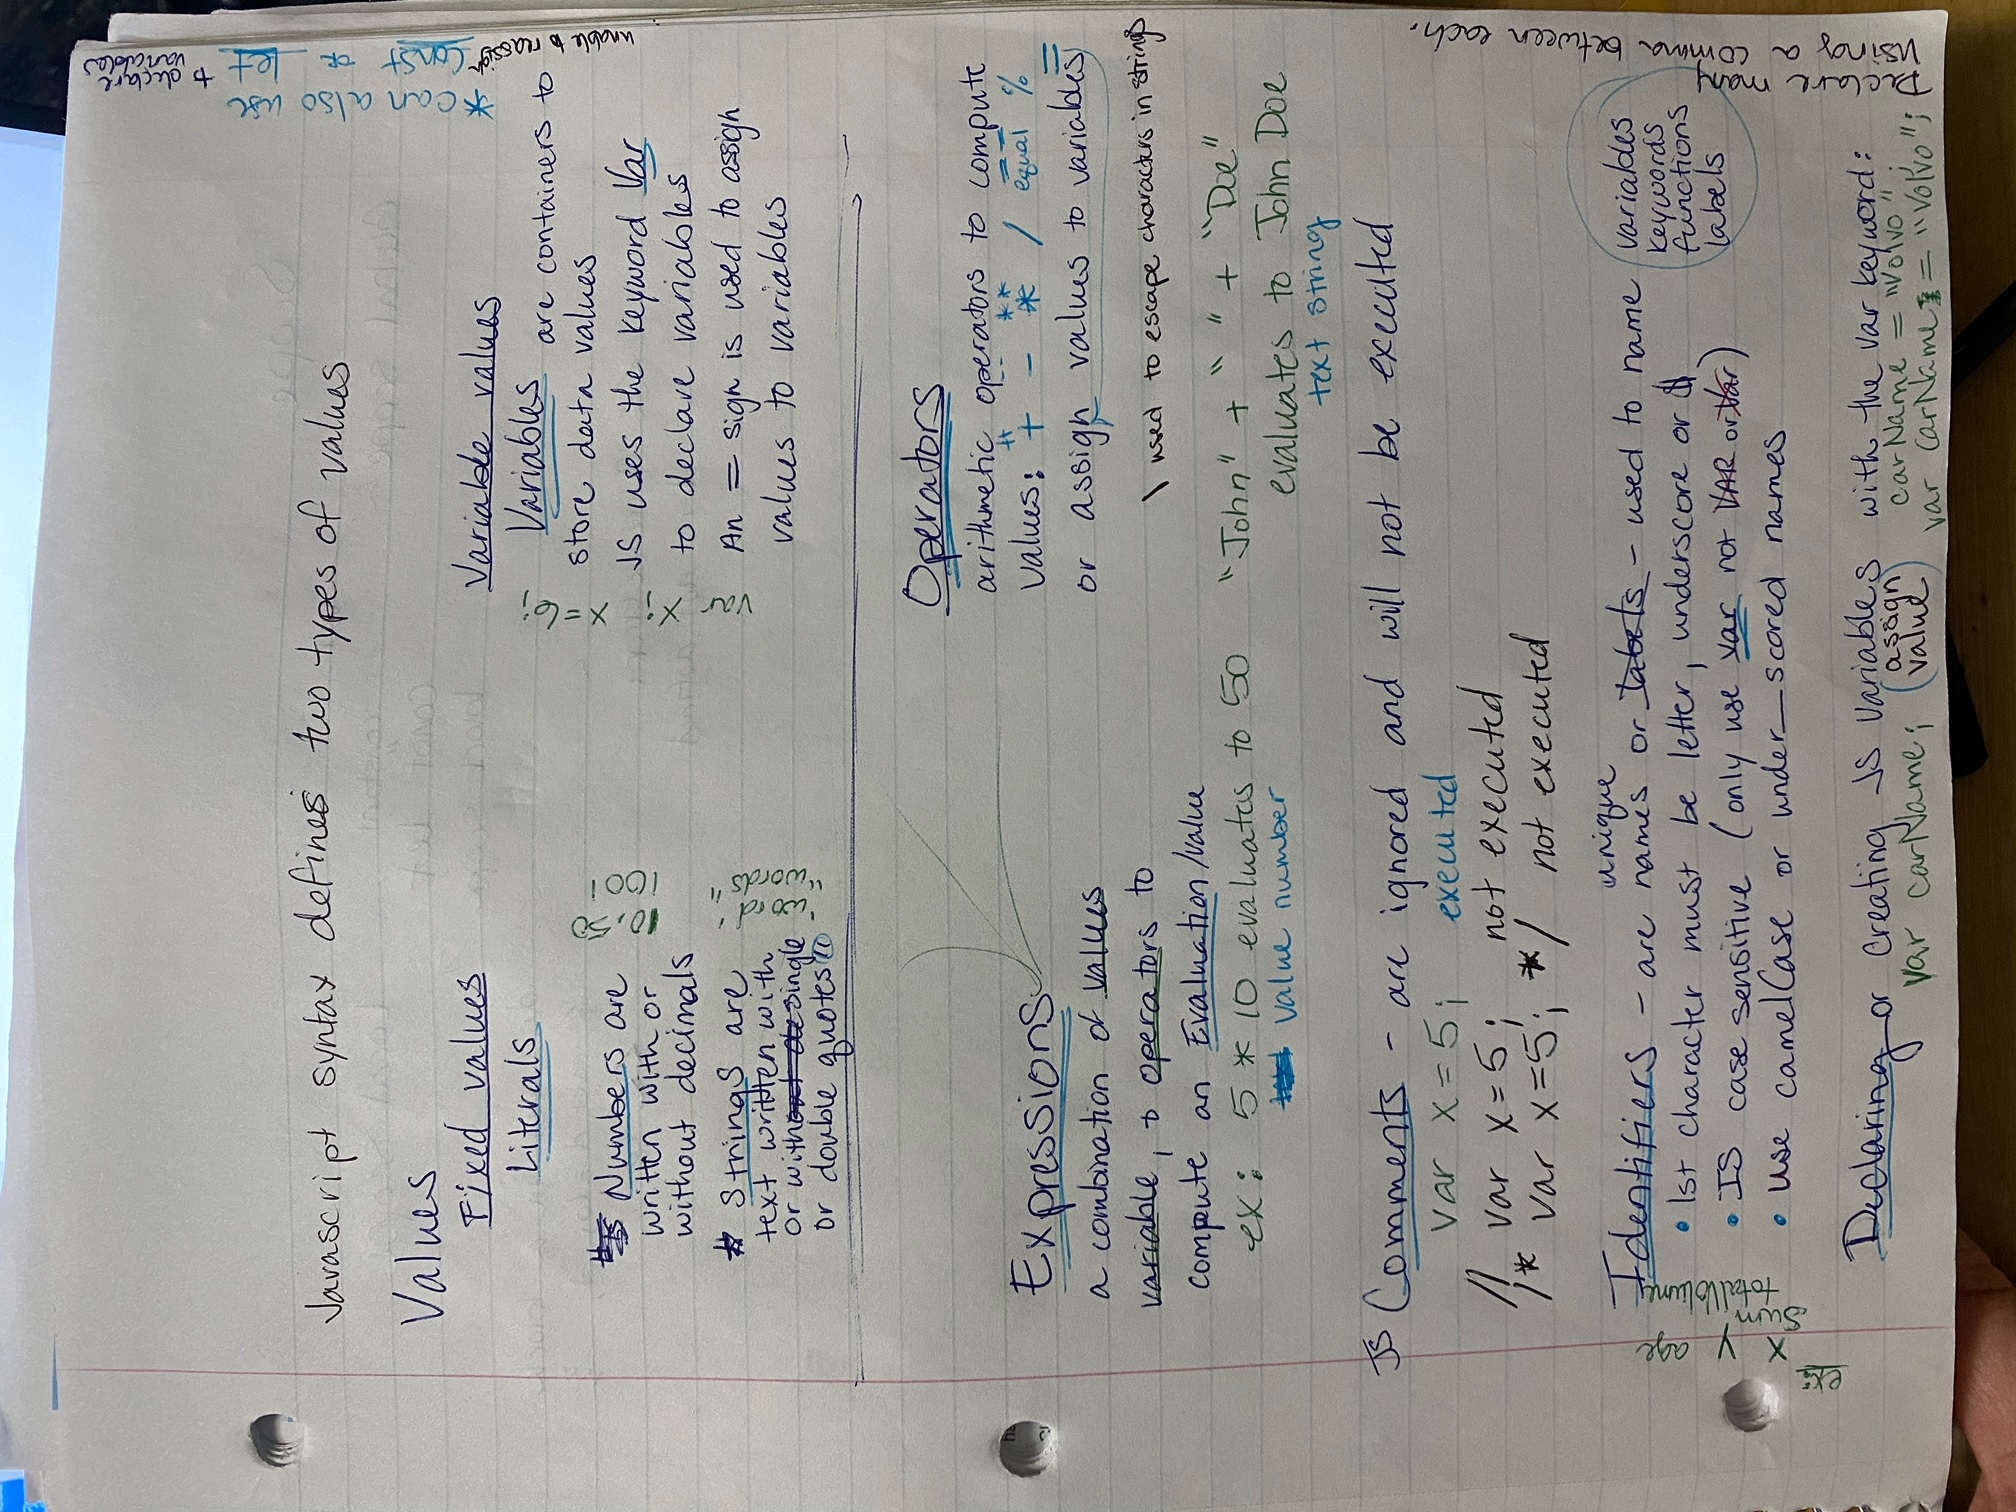 Javascript syntax defines two types of values
Values
Fixed values
Literals
Numbers are
written with or
without decimals
10.50
1001
Strings are
text written with
or with single
or double quotes
'word'
"words"
Variable values
Variables are containers to
store data values
JS uses the keyword Var
to declare variables
An = sign is used to assign
values to variables
var x; x = 6;
*can also use
const or let to declare
variables
unable to reassign
Operators
arithmetic operators to compute
values: + - * / equal %
++ -- ** ==
or assign values to variables
\ used to escape characters in strings
Expressions
a combination of values
variable, & operators to
compute an Evaluation/value
ex: 5 * 10 evaluates to 50
value number
"John" + " " + "Doe"
evaluates to John Doe
text string
JS Comments - are ignored and will not be executed
var x = 5; executed
// var x = 5; not executed
/* var x = 5; */ not executed
unique
Identifiers - are names or labels - used to name
variables
keywords
functions
labels
• 1st character must be letter, underscore or $
• IS case sensitive (only use var not VAR or Var)
• use camelCase or under_scored names
ex: x y age
sum
totalVolume
Declaring or creating JS variables with the var keyword:
var carName; (assign value) carName = "Volvo";
var carName = "Volvo";
Declare many
using a comma between each.